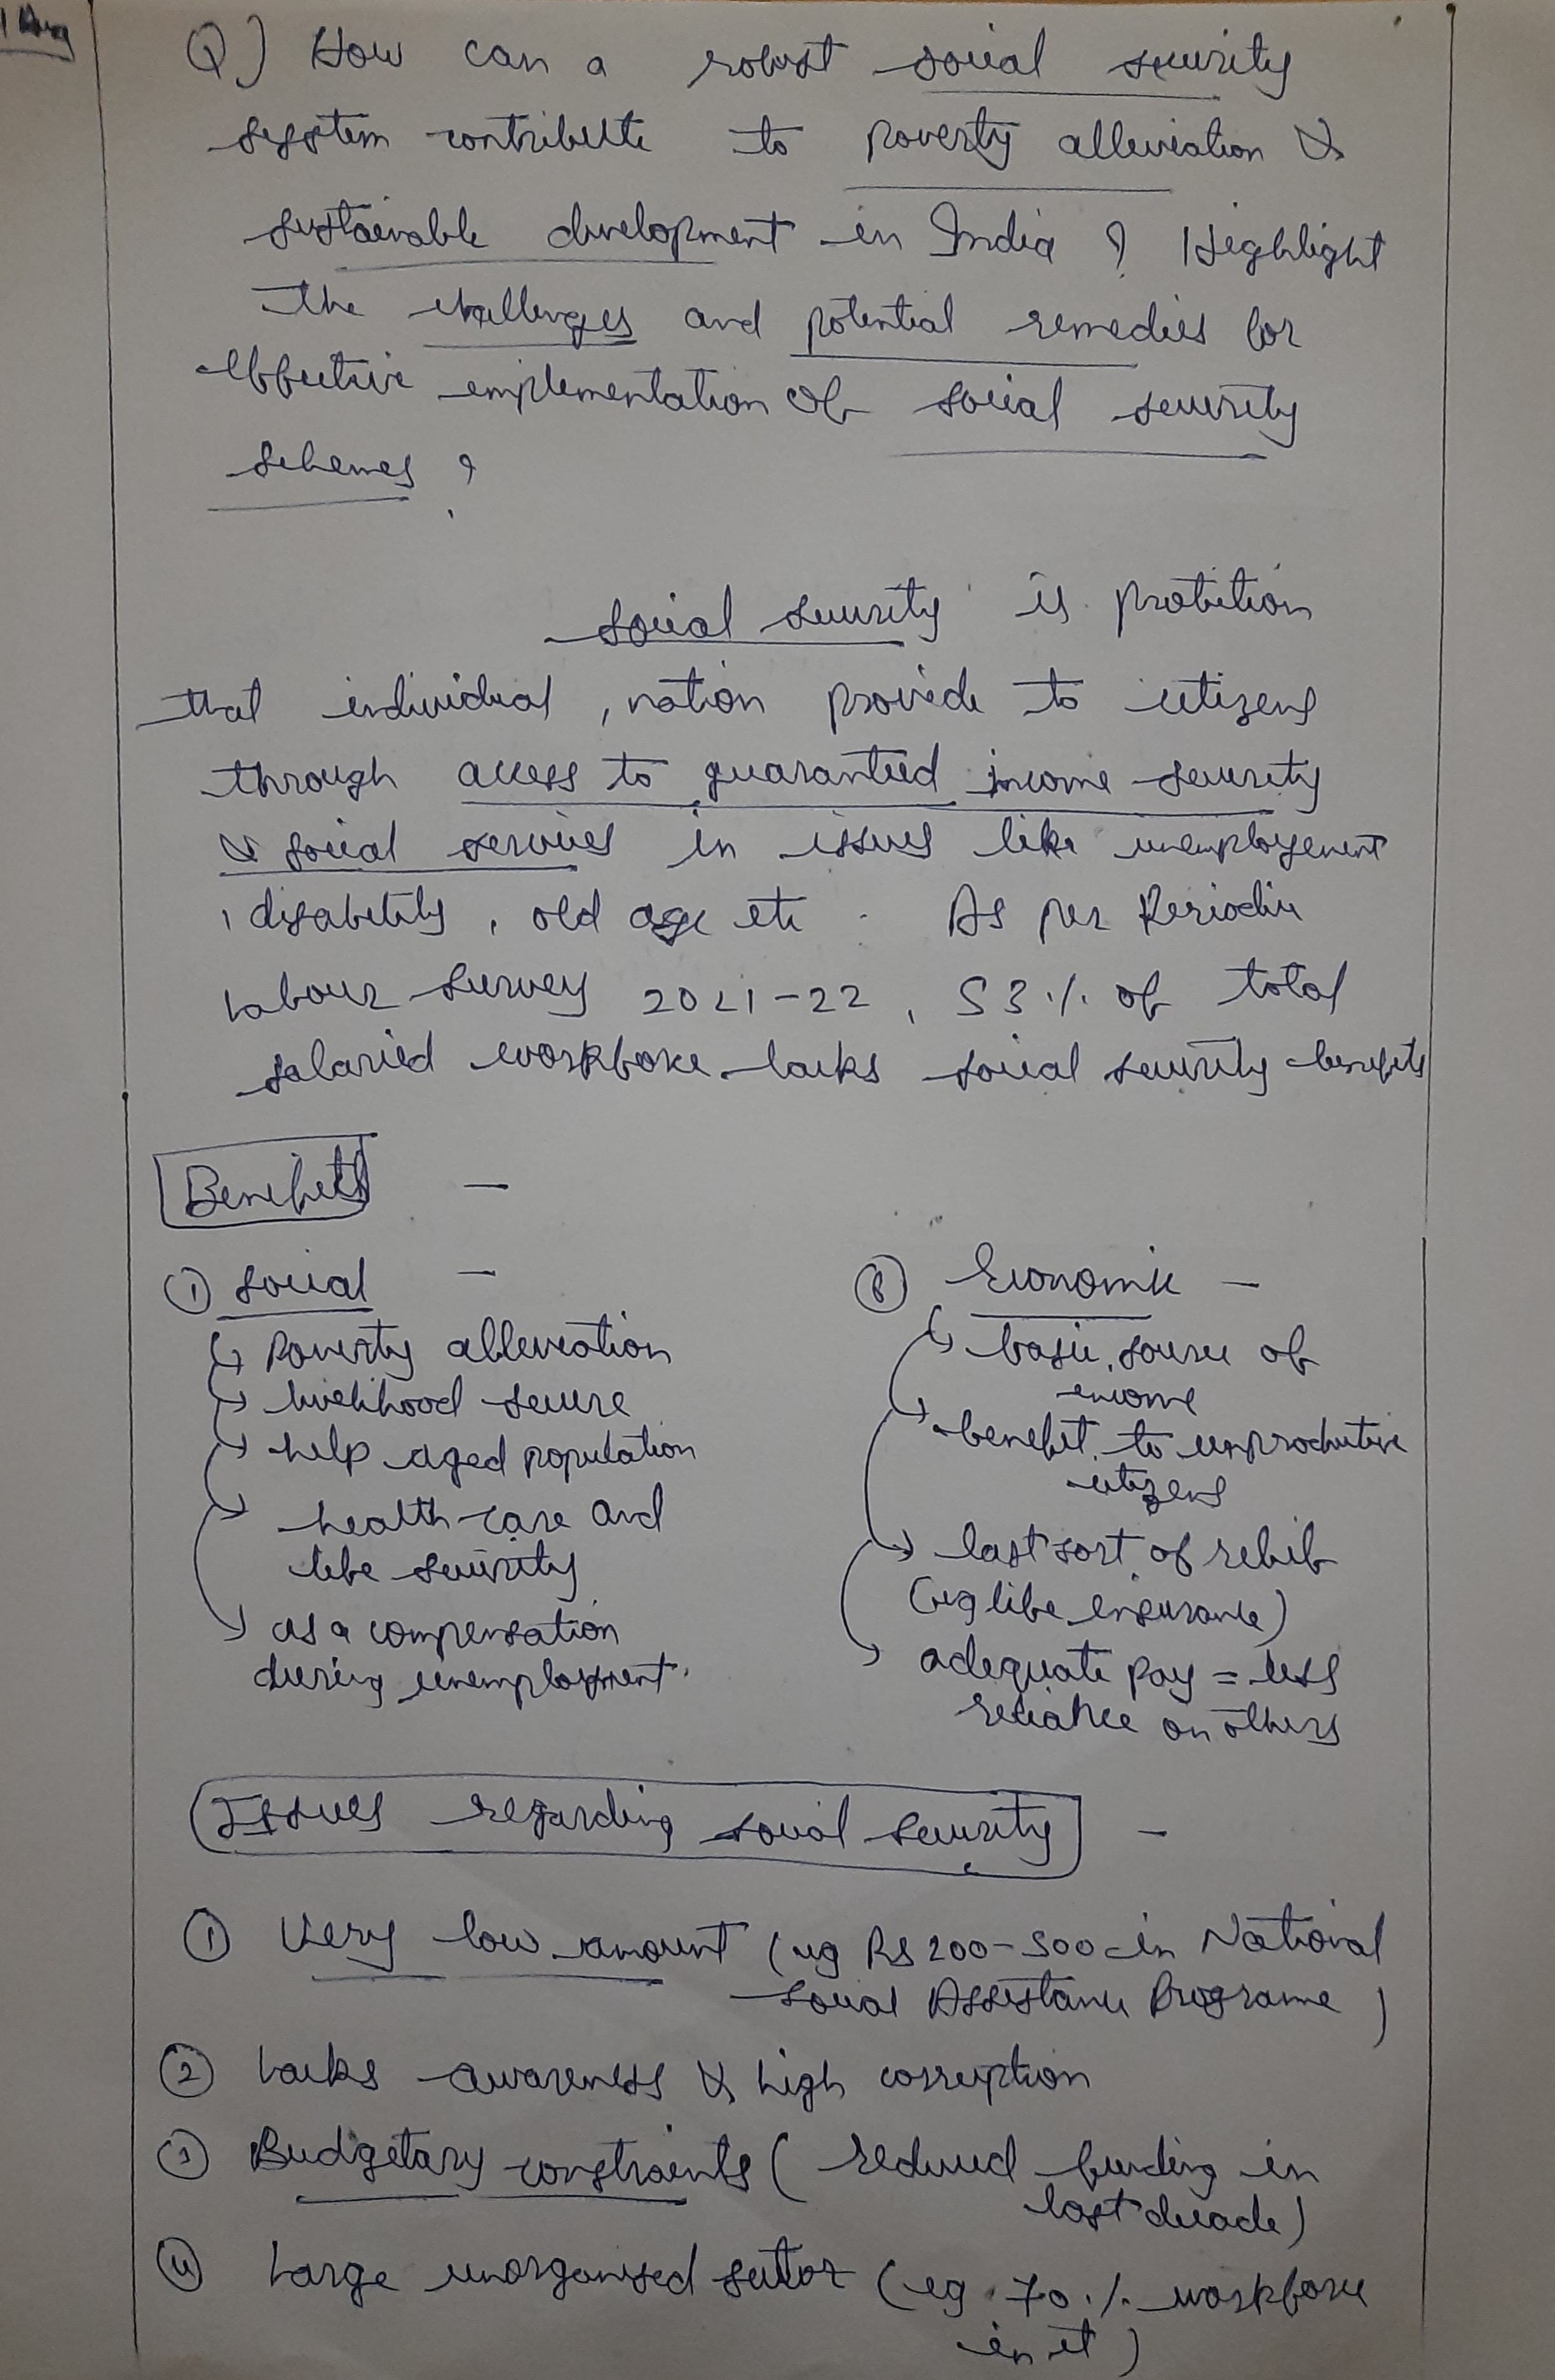 1 Aug
Q) How can a robust social security
system contribute to poverty alleviation &
sustainable development in India ? Highlight
the challenges and potential remedies for
effective implementation of social security
schemes ?
Social security is protection
that individual, nation provide to citizens
through access to guaranteed income security
& social services in issues like unemployement
, disability, old age etc . As per Periodic
Labour Survey 2021-22, 53% of total
salaried workforce lacks social security benefits
Benefits —
① Social —
Poverty alleviation
livelihood secure
help aged population
health care and
life security
as a compensation
during unemployment.
Economic —
basic source of
income
benefit to unproductive
citizens
last sort of relief
(eg life insurance)
adequate pay = less
reliance on others
Issues regarding social security —
① Very low amount (eg Rs 200-500 in National
Social Assistance Programe )
② Lacks awareness & high corruption
③ Budgetary constraints ( reduced funding in
last decade)
④ Large unorganised sector (eg. 70% workforce
in it )